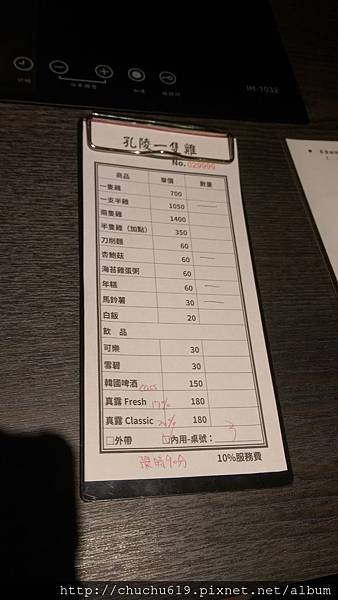 IH-1032
孔陵一隻雞
No. 029999
商品 單價 數量
一隻雞 700
一支半雞 1050 一
兩隻雞 1400
半隻雞（加點） 350
刀削麵 60
杏鮑菇 60 一
海苔雞蛋粥 60
年糕 60 一
馬鈴薯 30 一
白飯 20
飲 品
可樂 30
雪碧 30
韓國啤酒 cass 150
真露 Fresh 17% 180
真露 Classic 20% 180
□外帶 □內用-桌號： 3
限時90分 10%服務費
http://chuchu619.pixnet.net/album